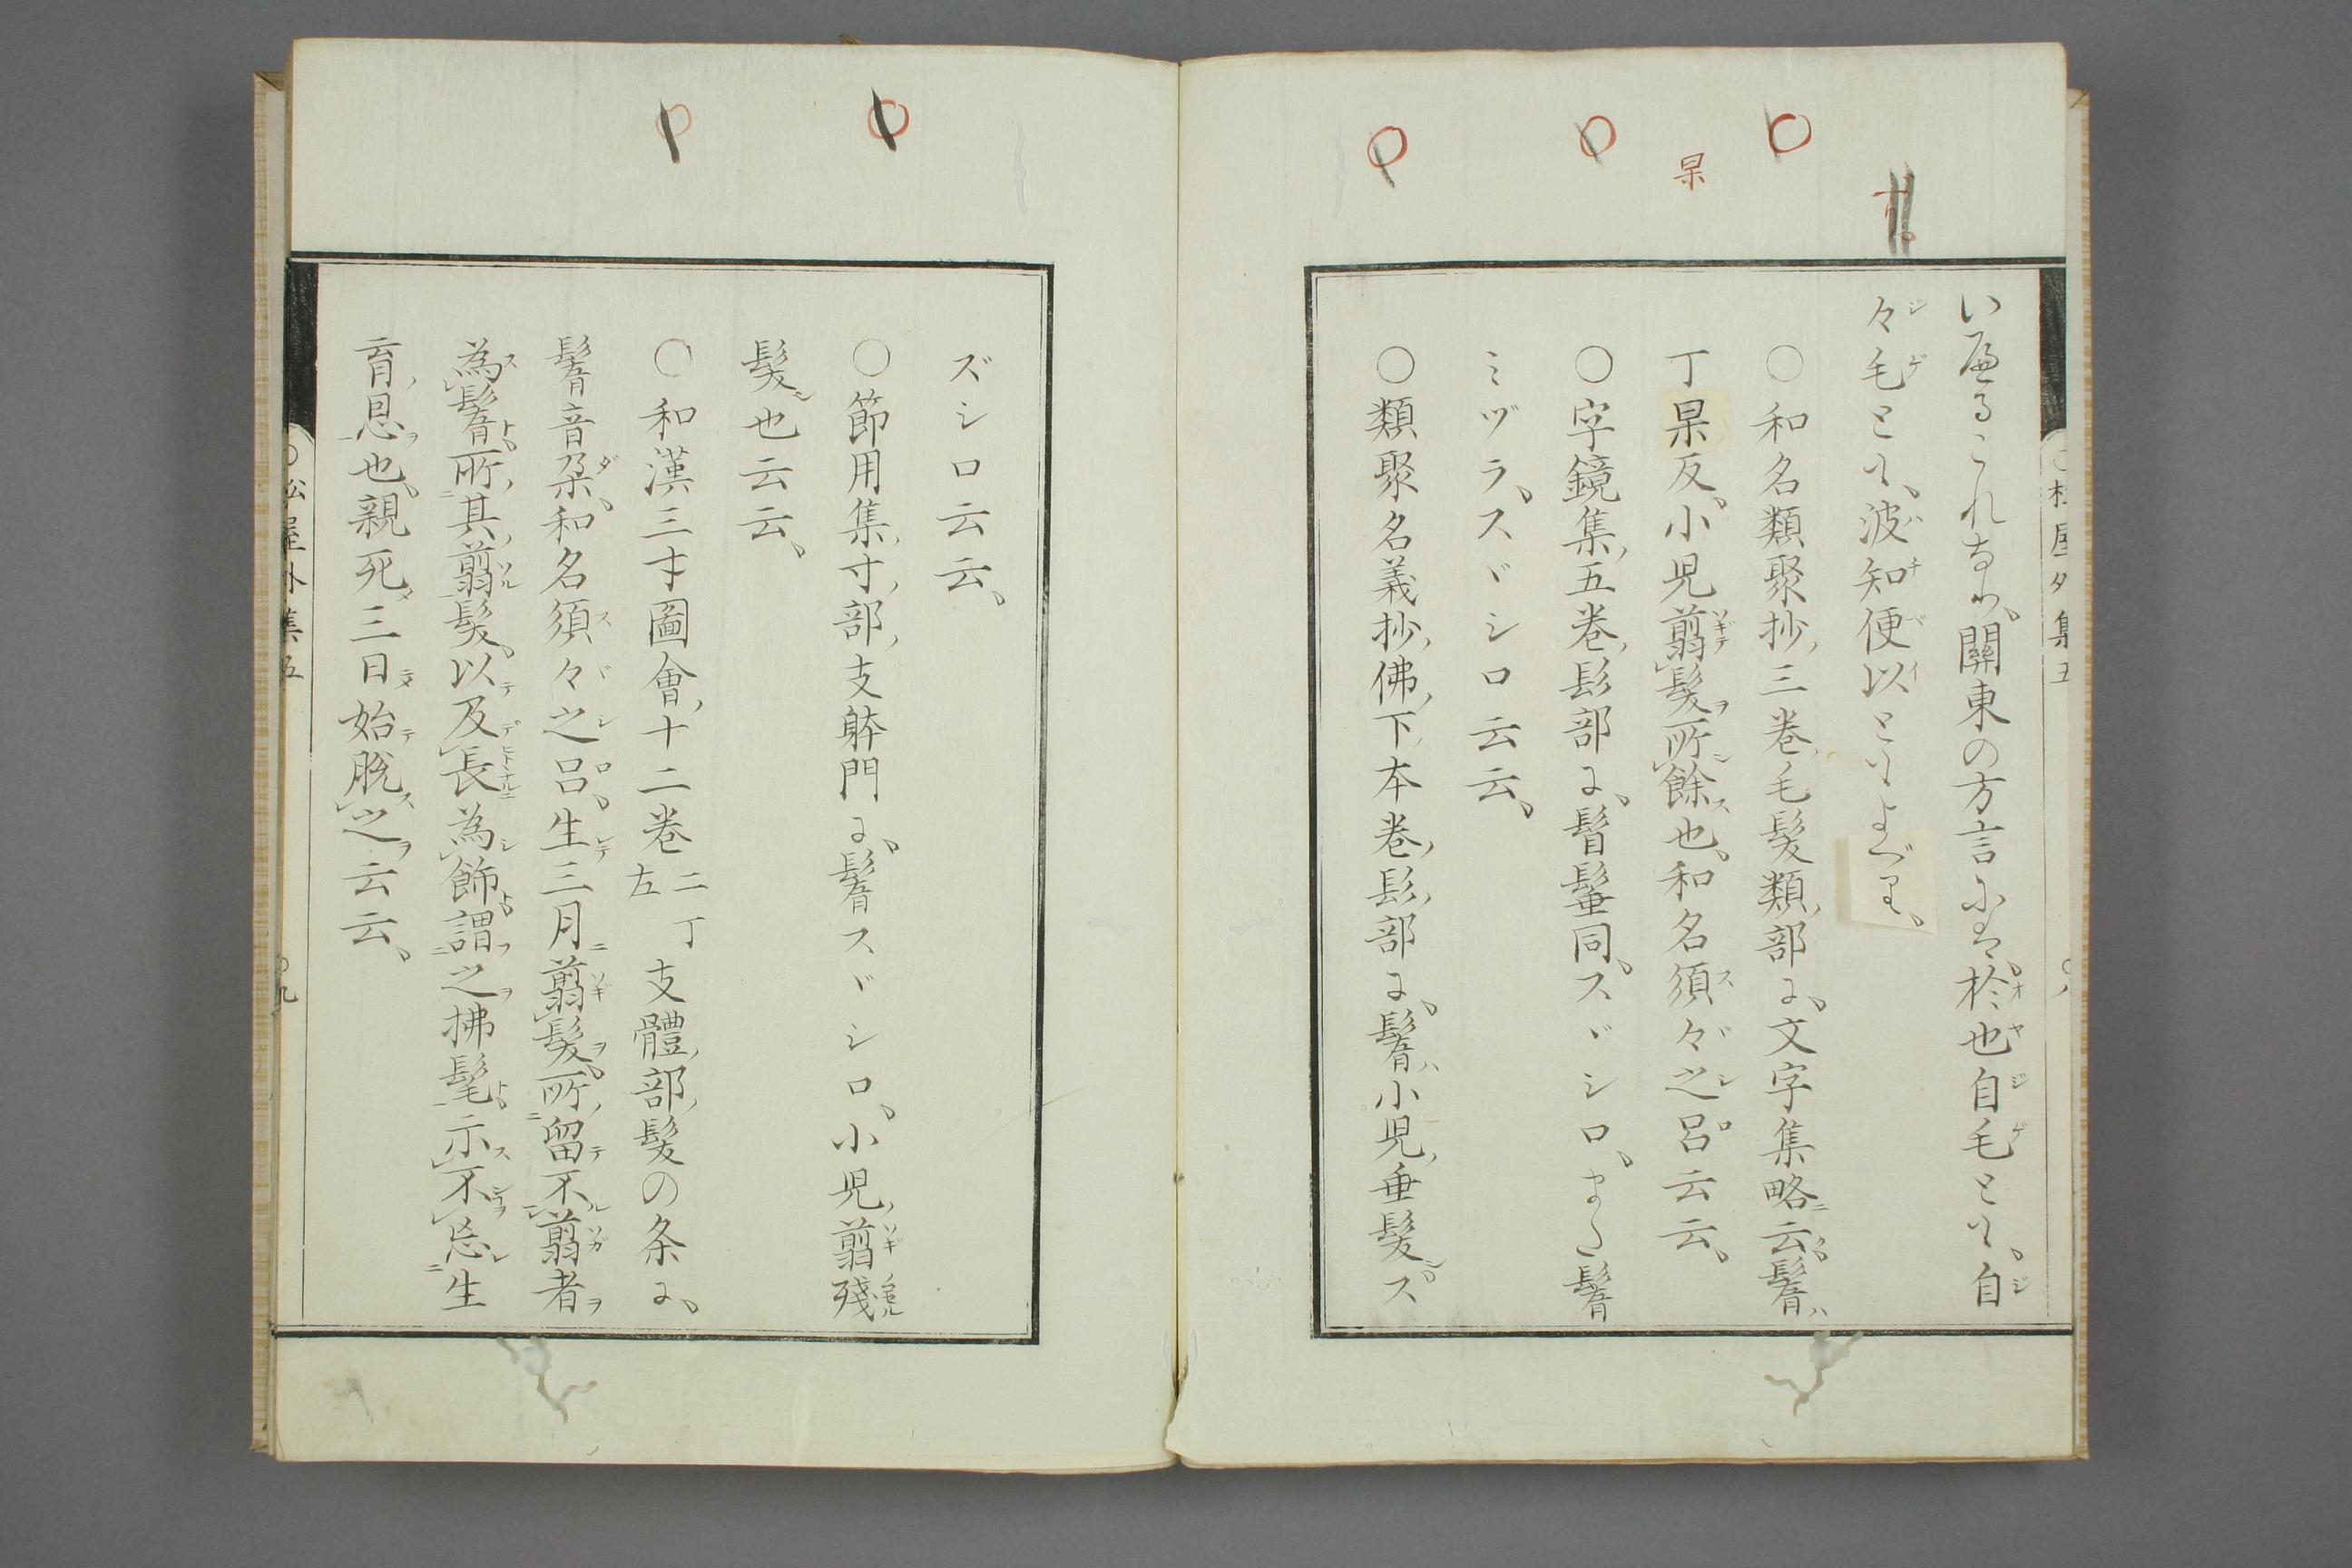 いへるこれなり、關東の方言にては、於也自毛とも、自
々毛とも、波知便以ともよべり、
○和名類聚抄、三巻、毛髪類、部に、文字集略云、髫ハ
丁杲反、小児翦髪所餘也、和名須々之呂云云、
○字鏡集、五巻、髟部に、髫同、スヾシロ、また
ミヅラ、スヾシロ云云、
○類聚名義抄、佛、下本巻、髟、部に、小児、垂髪ス
杲
ズシロ云云、
○節用集、寸、部、支躰門に、スヾシロ、小児、翦殘
髪也云云、
○和漢三才圖會、十二巻二丁左支體、部、髪の条に、
音朶、和名須々之呂、生三月翦髪、所留不翦者
為所、其、翦髪、以及長為飾謂之拂髦示不忘生
育、恩也、親死三日始脱之云云、
○松屋外集五
○九